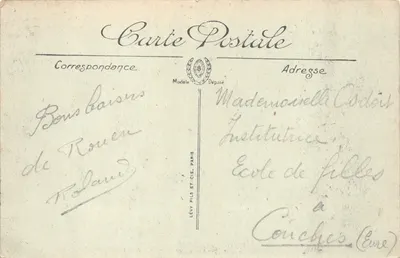 Carte Postale
Correspondance
Adresse
Modèle Déposé
Bons baisers
de Rouen
Roland
LÉVY FILS ET CIE, PARIS
Mademoiselle
Institutrice
Ecole de filles
à
Conches (Eure)